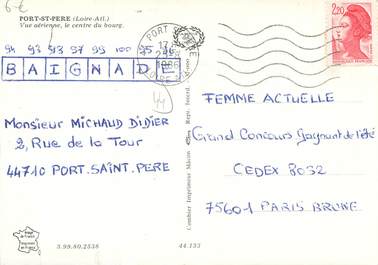 6 €
PORT-ST-PERE (Loire-Atl.)
Vue aérienne, le centre du bourg.
94 93 513 97 99 100 95 96
BAIGNADE
44
Monsieur MICHAUD DIDIER
2, Rue de la Tour
44710 PORT.SAINT.PERE
3.99.80.2538
44.133
Combier Imprimeur Mâcon
1986
2,20
FEMME ACTUELLE
Grand Concours Gagnant de l'été
CEDEX 8032
75601 PARIS BRUNE